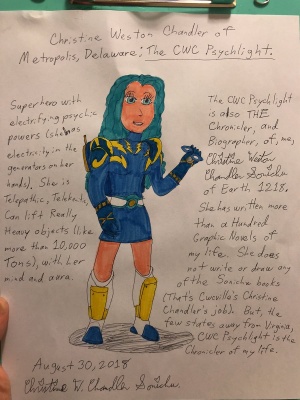 Christine Weston Chandler of
Metropolis, Delaware; The CWC Psychlight.
Superhero with
electrifying psychic
powers (she has
electricity in the
generators on her
hands). She is
Telepathic, Telekinetic,
Can lift Really
Heavy objects (like
more than 10,000
Tons), with her
mind and aura.
The CWC Psychlight
is also THE
Chronicler, and
Biographer, of, me,
Christine Weston
Chandler Sonichu
of Earth 1218.
She has written more
than a Hundred
Graphic Novels of
my life. She does
not write or draw any
of the Sonichu books
(That's Cwcville's Christine
Chandler's job). But, the
few states away from Virginia,
CWC Psychlight is the
Chronicler of my life.
August 30, 2018
Christine W. Chandler Sonichu